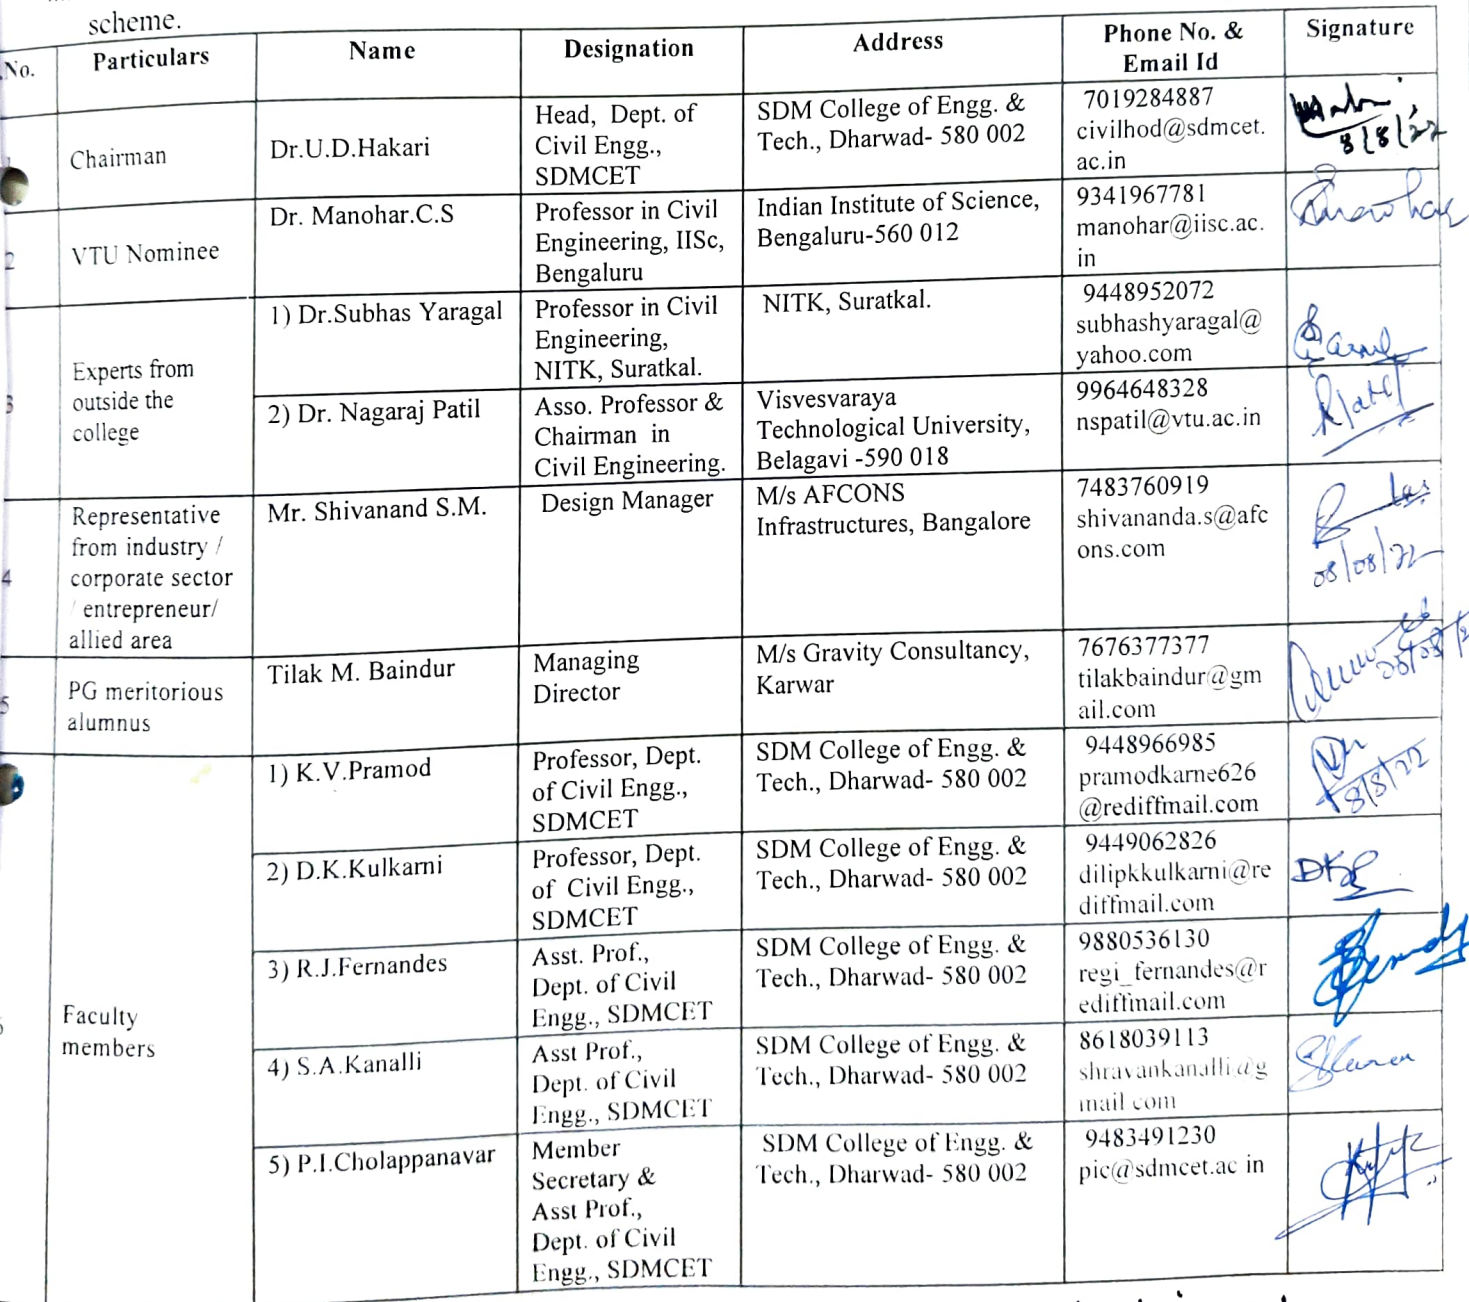 scheme.
No.
Particulars
Name
Designation
Address
Phone No. &
Email Id
Signature
Chairman
Dr.U.D.Hakari
Head, Dept. of
Civil Engg.,
SDMCET
SDM College of Engg. &
Tech., Dharwad- 580 002
7019284887
civilhod@sdmcet.
ac.in
8/8/'22
2
VTU Nominee
Dr. Manohar.C.S
Professor in Civil
Engineering, IISc,
Bengaluru
Indian Institute of Science,
Bengaluru-560 012
9341967781
manohar@iisc.ac.
in
3
Experts from
outside the
college
1) Dr.Subhas Yaragal
Professor in Civil
Engineering,
NITK, Suratkal.
NITK, Suratkal.
9448952072
subhashyaragal@
yahoo.com
2) Dr. Nagaraj Patil
Asso. Professor &
Chairman in
Civil Engineering.
Visvesvaraya
Technological University,
Belagavi -590 018
9964648328
nspatil@vtu.ac.in
4
Representative
from industry /
corporate sector
/ entrepreneur/
allied area
Mr. Shivanand S.M.
Design Manager
M/s AFCONS
Infrastructures, Bangalore
7483760919
shivananda.s@afc
ons.com
08/08/22
5
PG meritorious
alumnus
Tilak M. Baindur
Managing
Director
M/s Gravity Consultancy,
Karwar
7676377377
tilakbaindur@gm
ail.com
Faculty
members
1) K.V.Pramod
Professor, Dept.
of Civil Engg.,
SDMCET
SDM College of Engg. &
Tech., Dharwad- 580 002
9448966985
pramodkarne626
@rediffmail.com
8/8/22
2) D.K.Kulkarni
Professor, Dept.
of Civil Engg.,
SDMCET
SDM College of Engg. &
Tech., Dharwad- 580 002
9449062826
dilipkkulkarni@re
diffmail.com
3) R.J.Fernandes
Asst. Prof.,
Dept. of Civil
Engg., SDMCET
SDM College of Engg. &
Tech., Dharwad- 580 002
9880536130
regi_fernandes@r
ediffmail.com
4) S.A.Kanalli
Asst Prof.,
Dept. of Civil
Engg., SDMCET
SDM College of Engg. &
Tech., Dharwad- 580 002
8618039113
shravankanalli@g
mail com
5) P.I.Cholappanavar
Member
Secretary &
Asst Prof.,
Dept. of Civil
Engg., SDMCET
SDM College of Engg. &
Tech., Dharwad- 580 002
9483491230
pic@sdmcet.ac in